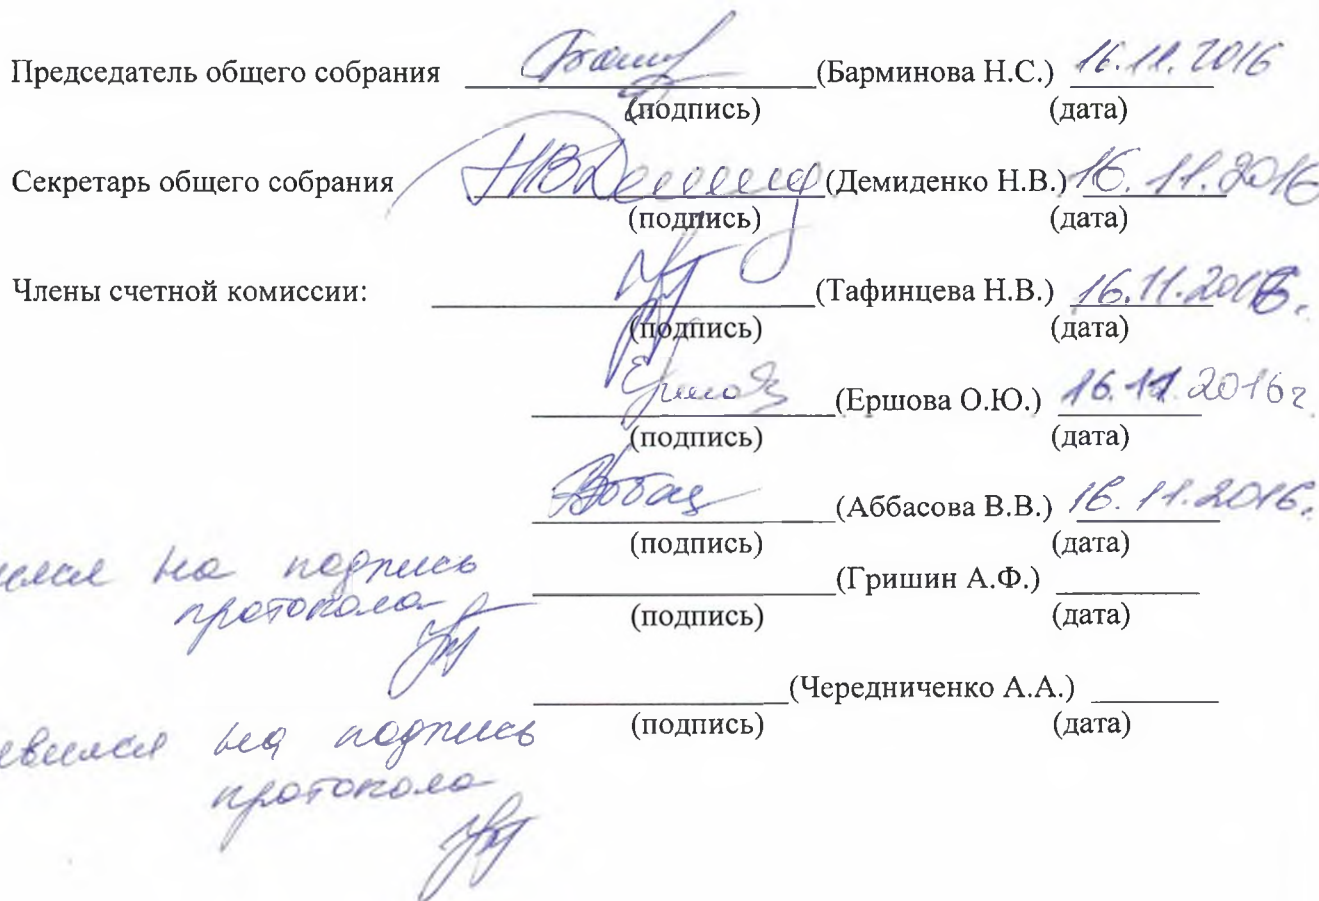 Председатель общего собрания (Барминова Н.С.) 16.11.2016
(подпись) (дата)
Секретарь общего собрания (Демиденко Н.В.) 16.11.2016
(подпись) (дата)
Члены счетной комиссии: (Тафинцева Н.В.) 16.11.2016.
(подпись) (дата)
(Ершова О.Ю.) 16.11.2016г.
(подпись) (дата)
(Аббасова В.В.) 16.11.2016.
(подпись) (дата)
на подпись (Гришин А.Ф.)
протокола (подпись) (дата)
(Чередниченко А.А.)
(подпись) (дата)
на подпись
протокола